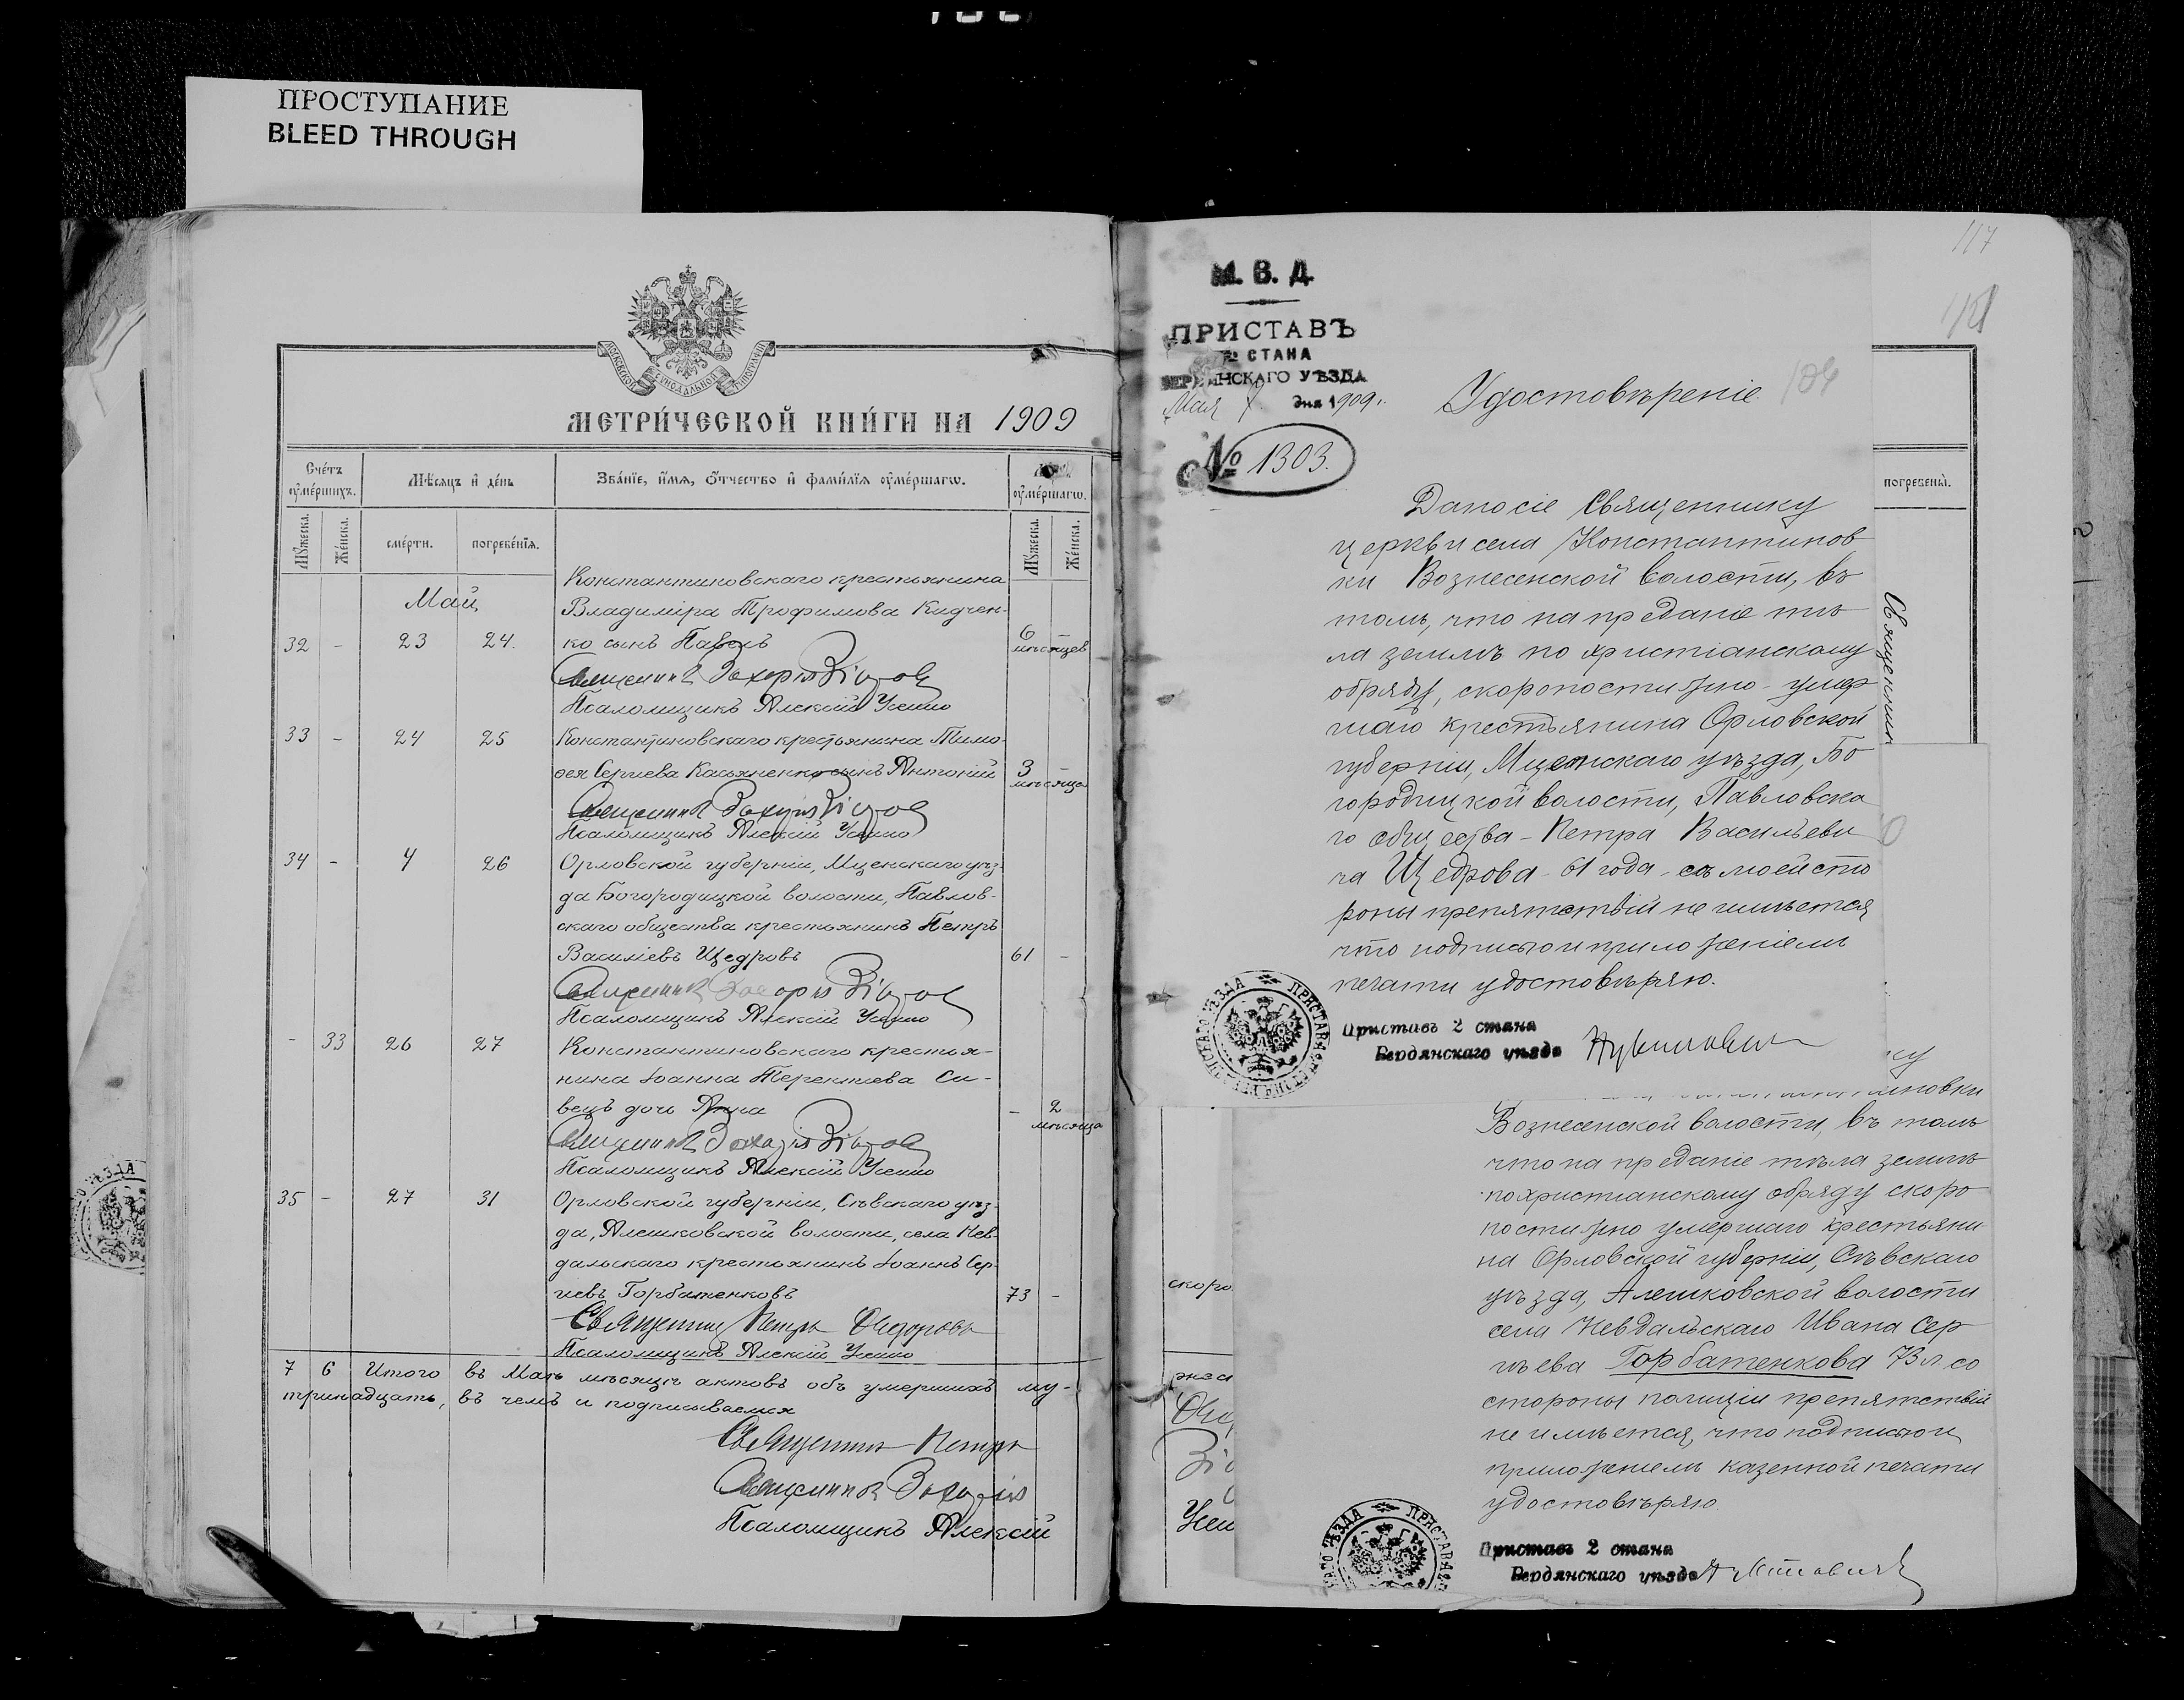 ПРОСТУПАНИЕ
BLEED THROUGH
МОСКОВСКОЙ СѴНОДАЛЬНОЙ ТИПОГРАФІИ
МЕТРИ́ЧЕСКОЙ КНИ́ГИ НА 1909
Сче́тъ ᲂу҆ме́ршихъ.
Мѣ́сяцъ и҆ де́нь
Зва́нїе, и҆́мѧ, ѻ҆́тчество и҆ фами́лїѧ ᲂу҆ме́ршагѡ.
ᲂу҆ме́ршагѡ.
Мꙋ́жеска.
Же́нска.
сме́рти.
погребе́нїѧ.
Мꙋ́жеска.
Же́нска.
Май
Константиновскаго крестьянина
Владиміра Трофимова Кидчен-
32 - 23 24. ко сынъ Павелъ 6 мѣсяцев -
Священникъ Захарія
Псаломщикъ Алексій Усенко
33 - 24 25 Константиновскаго крестьянина Тимо-
ѳея Сергіева Касьяненко сынъ Антоній 3 мѣсяца -
Священникъ Захарія
Псаломщикъ Алексій Усенко
34 - 4 26 Орловской губерніи, Мценскаго уѣз-
да Богородицкой волости, Павлов-
скаго общества крестьянинъ Петръ
Василіевъ Щедровъ 61 -
Священникъ Захарія
Псаломщикъ Алексій Усенко
- 33 26 27 Константиновскаго крестья-
нина Іоанна Терентіева Си-
вецъ дочь Анна - 2 мѣсяца
Священникъ Захарія
Псаломщикъ Алексій Усенко
35 - 27 31 Орловской губерніи, Сѣвскаго уѣз-
да, Алешковской волости, села Нев-
дальскаго крестьянинъ Іоаннъ Сер-
гіевъ Горбатенковъ 73 -
Священник Петръ Ѳедоровъ
Псаломщикъ Алексій Усенко
7 6 Итого въ Маѣ мѣсяцѣ актовъ объ умершихъ му-
тринадцать, въ чемъ и подписываемся
Священник Петръ
Священникъ Захарія
Псаломщикъ Алексій
117
М. В. Д.
ПРИСТАВЪ
2 СТАНА
БЕРДЯНСКАГО УѢЗДА
Мая дня 1909 г.
№ 1303.
Удостовѣреніе
104
Дано сіе Священнику
церкви села Константинов
ки Вознесенской волости, въ
томъ, что на преданіе тѣ
ла землѣ по христіанскому
обряду, скоропостижно умер
шаго крестьянина Орловской
губерніи, Мценскаго уѣзда, Бо
городицкой волости, Павловска
го общества - Петра Васильеви
ча Щедрова - 61 года - съ моей сто
роны препятствій не имѣется,
что подписью и приложеніемъ
печати удостовѣряю.
Приставъ 2 стана
Бердянскаго уѣзда
погребены̀.
Священник
скоро
Усен
ку
иновки
Вознесенской волости, въ томъ
что на преданіе тѣла землѣ
по христіанскому обряду скоро
постижно умершаго крестьяни
на Орловской губерніи, Сѣвскаго
уѣзда, Алешковской волости
села Невдальскаго Ивана Сер
гѣева Горбатенкова 73 л. со
стороны полиціи препятствій
не имѣется, что подписью и
приложеніемъ казенной печати
удостовѣряю.
Приставъ 2 стана
Бердянскаго уѣзда